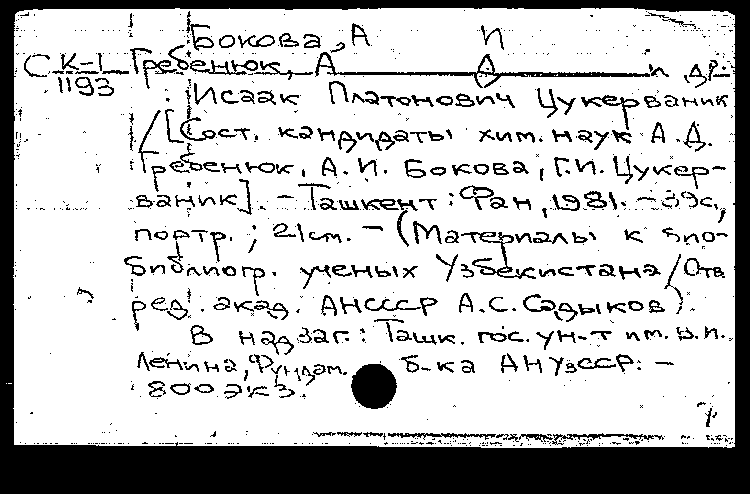 Бокова, А И
С К-1 Гребенюк, А Д и др.
1193
: Исаак Платонович Цукерваник
/[Сост. кандидаты хим. наук А.Д.
Гребенюк, А.И. Бокова, Г.И. Цукер-
ваник]. – Ташкент: Фан, 1981. – 39с.,
портр.; 21см. – (Материалы к био-
библиогр. ученых Узбекистана / Отв.
ред. акад. АНСССР А.С. Садыков).
В надзаг.: Ташк. гос. ун-т им. В.И.
Ленина, Фундам. б-ка АНУзССР. –
800 экз.